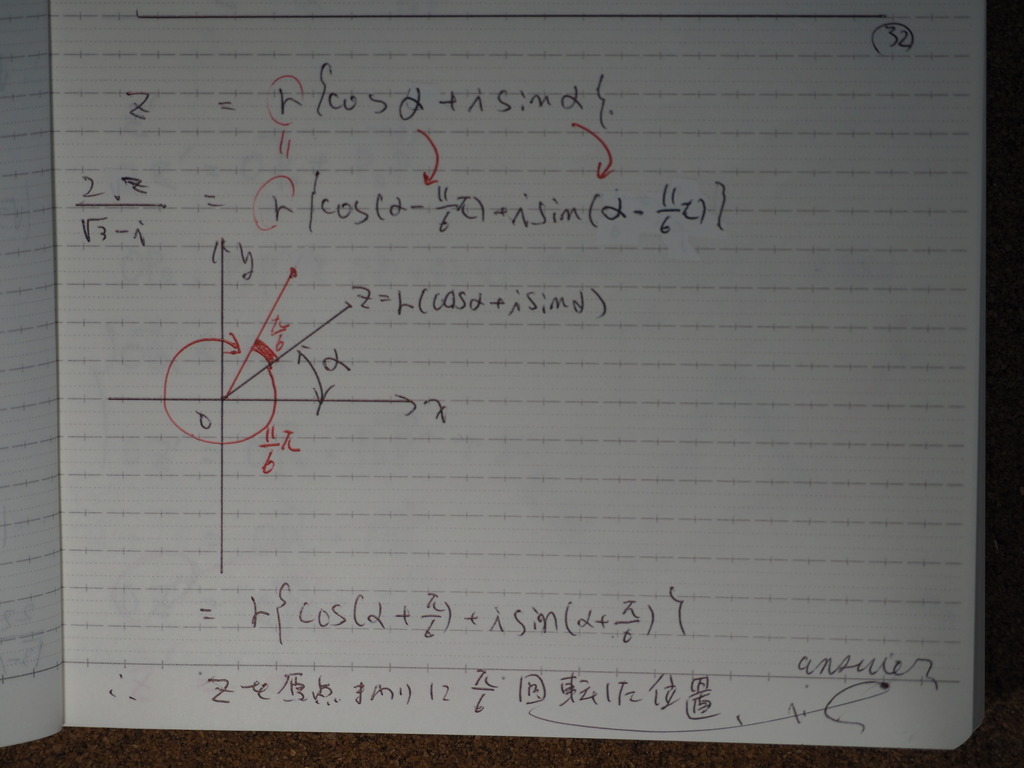 32
z = r{cosα + i sinα}.
2・z/(√3-i) = r{cos(α - 11/6 π) + i sin(α - 11/6 π)}
y
z = r(cosα + i sinα)
π/6
α
O
x
11/6 π
= r{cos(α + π/6) + i sin(α + π/6)}
answer
∴ zを原点まわりに π/6 回転した位置